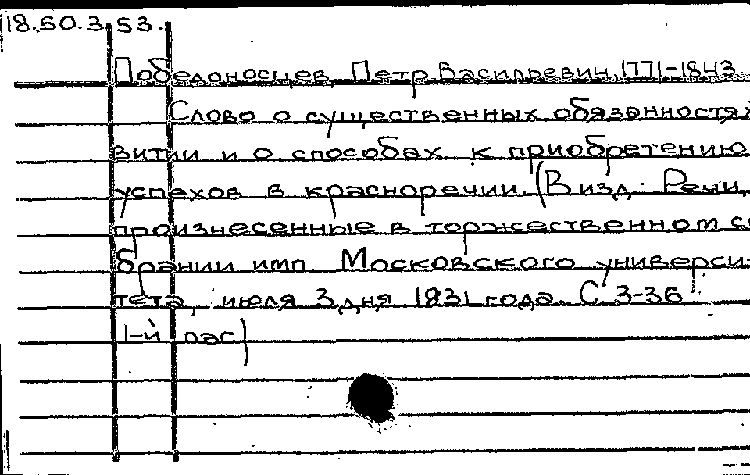 18.50.3.53.
Победоносцев, Петр Васильевич, 1771-1843.
Слово о существенных обязанностях
витии и о способах к приобретению
успехов в красноречии. (В изд.: Речи,
произнесенные в торжественном со
брании имп. Московского универси-
тета, июля 3 дня 1831 года. С 3-36
1-й паг)